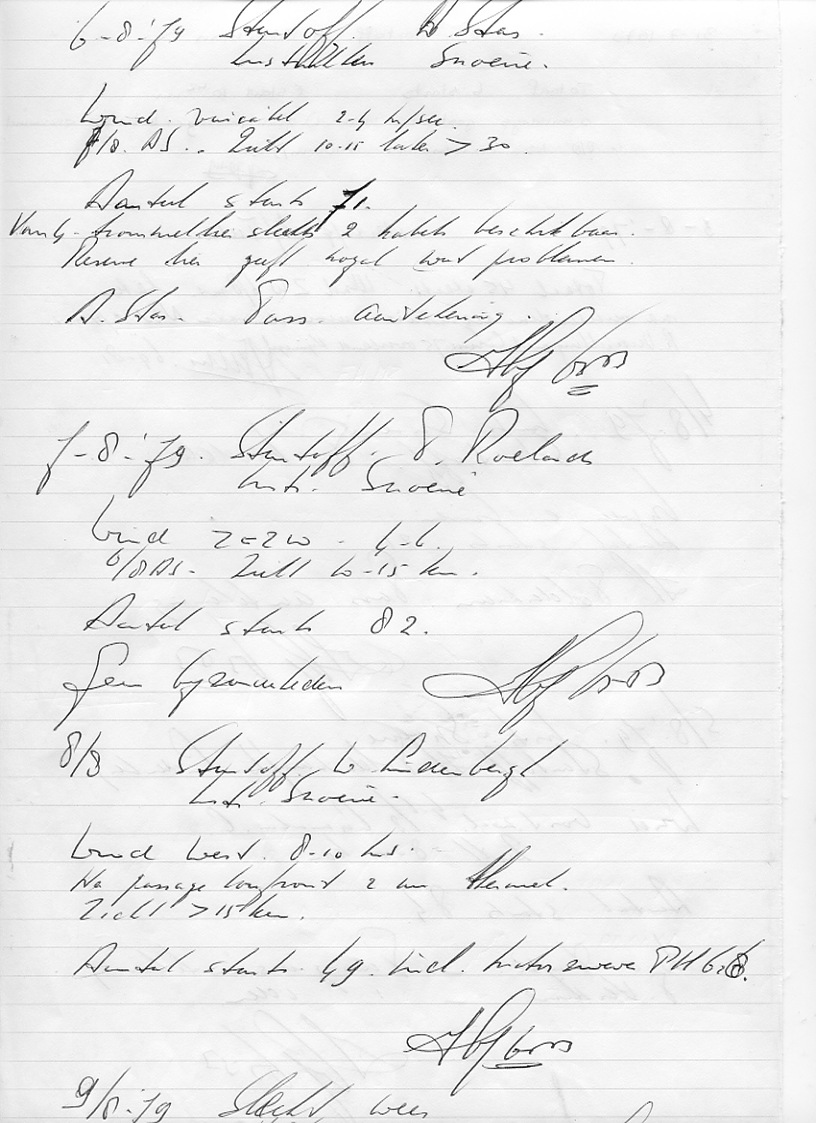 6-8-'79 Startoff. W. Stas.
Instrukteur Snoerie.
Wind. variabel 2-4 m/sec.
7/8. AS. Zicht 10-15 later > 30
Aantal starts 71.
Van 4-trommellier slechts 2 kabels beschikbaar.
Reserve lier geeft nogal wat problemen.
A. Stas. Pass. aantekening.
7-8-'79. Startoff. P. Roelands
Instr. Snoerie
Wind ZZW - 4-6.
6/8 AS. Zicht 10-15 km.
Aantal starts 82.
Geen byzonderheden
8/8 Startoff. W Lindenbergh
Instr. Snoerie.
Wind West. 8-10 ms.
Na passage koufront 2 uur thermiek.
Zicht > 15 km.
Aantal starts 49. incl. motorzweve
9/8-79 Slecht weer